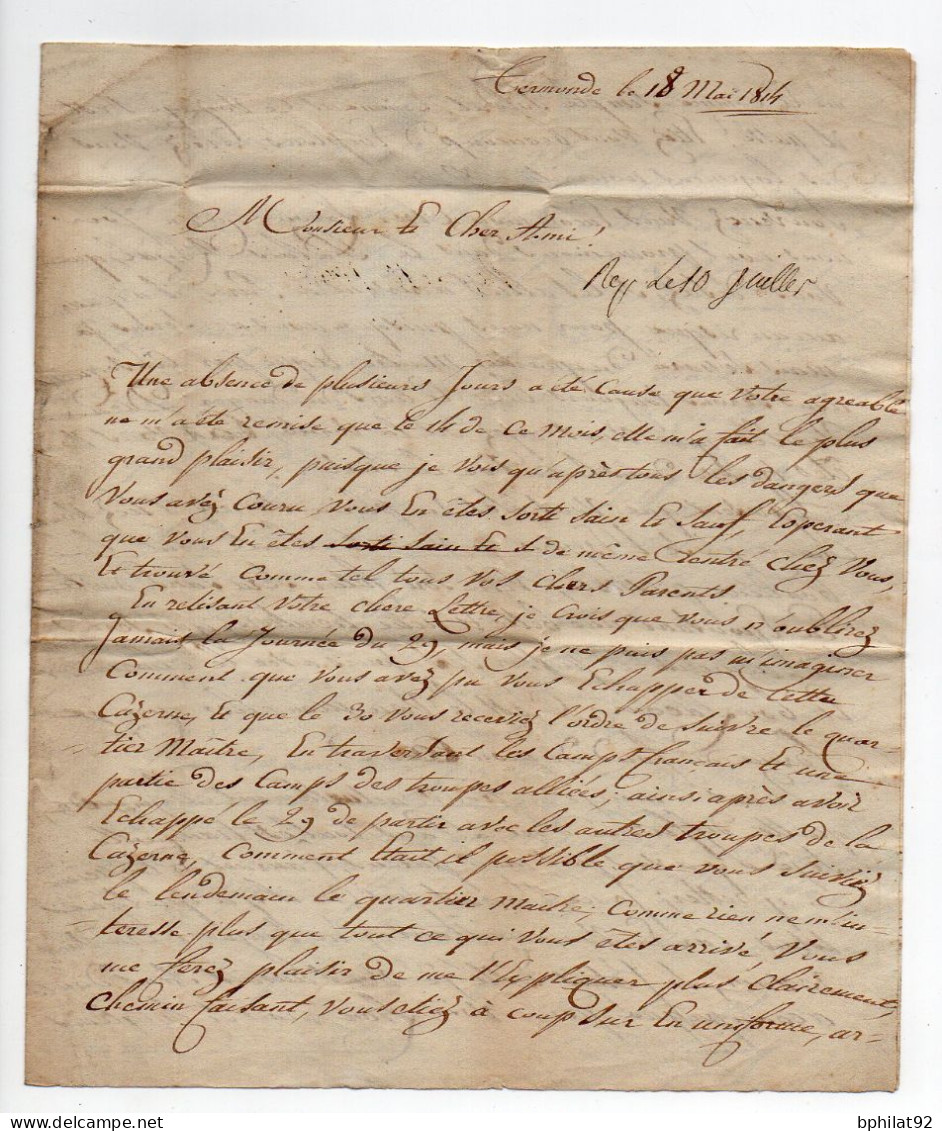 Termonde le 18 Mai 1814
Monsieur & Cher Ami!
Rep le 10 Juillet
Une absence de plusieurs Jours a été Cause que Votre agreable
ne m'a été remise que le 14 de Ce mois, elle m'a fait le plus
grand plaisir, puisque je Vois qu'après tous les dangers que
Vous avéz Couru, Vous En êtes Sorti Sain Et Sauf, Esperant
que Vous En êtes Sorti Sain Et S de même rentré chéz Vous,
Et trouvé Comme tel tous Vos chers Parents
En relisant Votre chere Lettre, je Crois que Vous n'oublirez
Jamais la Journée du 29, mais je ne puis pas m'imaginer
Comment que Vous avéz pu Vous Echapper de Cette
Cazerne, Et que le 30 Vous receviéz l'ordre de Suivre le quar-
-tier Maître, En traversant les Camps français Et une
partie des Camps des troupes alliées; ainsi après avoir
Echappé le 29 de partir avec les autres troupes de la
Cazerne, Comment Etait il possible que Vous Suiviéz
le lendemain le quartier Maitre; Comme rien ne m'in-
-teresse plus que tout Ce qui Vous êtes arrivé, Vous
me feréz plaisir de me l'Expliquer plus Clairement,
chemin faisant, Vous etiéz à Coup Sur En uniforme, ar-
bphilat92